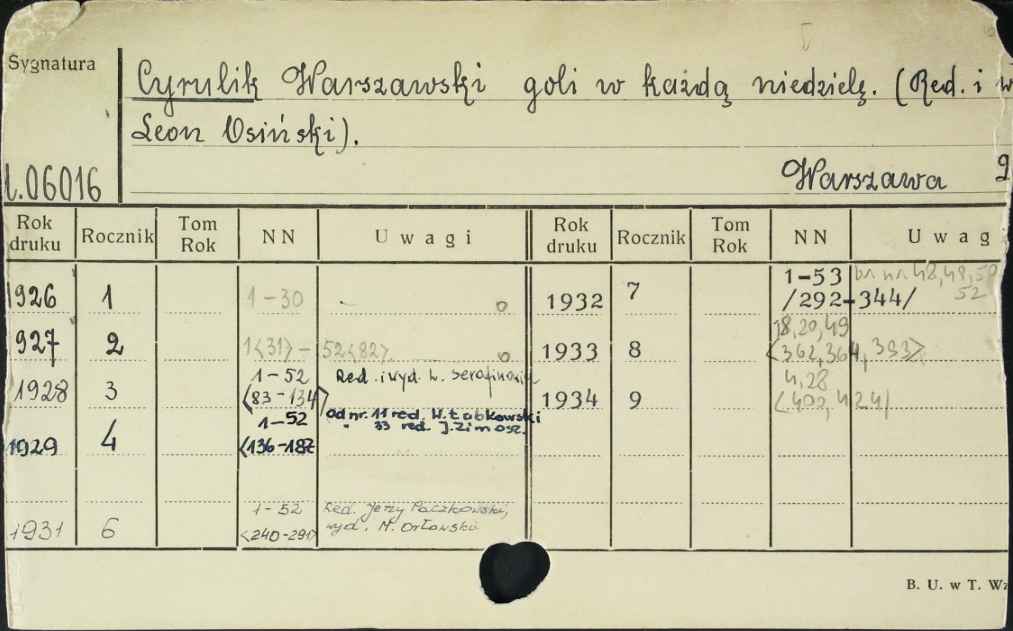 Sygnatura
Cyrulik Warszawski goli w każdą niedzielę. (Red. i w
Leon Osiński).
Ł.06016
Warszawa
Rok druku Rocznik Tom Rok NN Uwagi Rok druku Rocznik Tom Rok NN Uwag
1926 1 1-30 1932 7 1-53 br. nr. 48,49,50 52
/292-344/
1927 2 1<31> - 52<82> 1933 8 18,20,49
<362,364,393>
1928 3 1-52 Red. i wyd. L. Serafinowicz 1934 9 4,28
<83-134> <400,424/
1929 4 1-52 od nr. 11 red. W. Łabkowski
" 33 red. J. Zimosz.
<136-187
1931 6 1-52 Red. Jerzy Paczkowski,
<240-291> wyd. M. Orłowski
B. U. w T. Wz